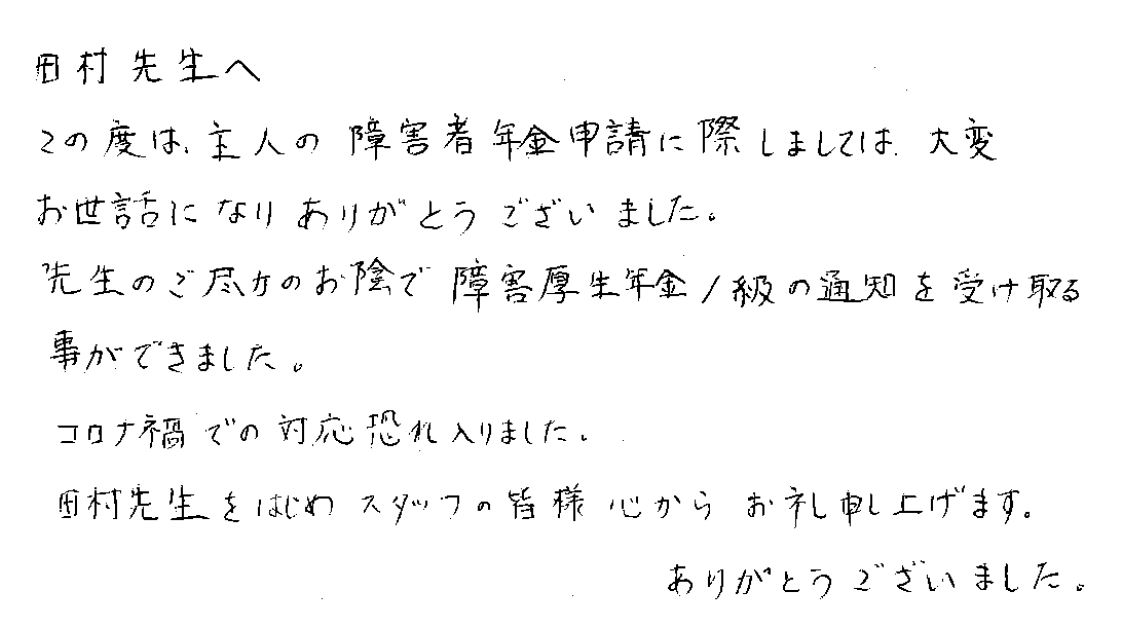 田村先生へ
この度は、主人の障害者年金申請に際しましては、大変
お世話になりありがとうございました。
先生のご尽力のお陰で障害厚生年金1級の通知を受け取る
事ができました。
コロナ禍での対応恐れ入りました。
田村先生をはじめスタッフの皆様心からお礼申し上げます。
ありがとうございました。